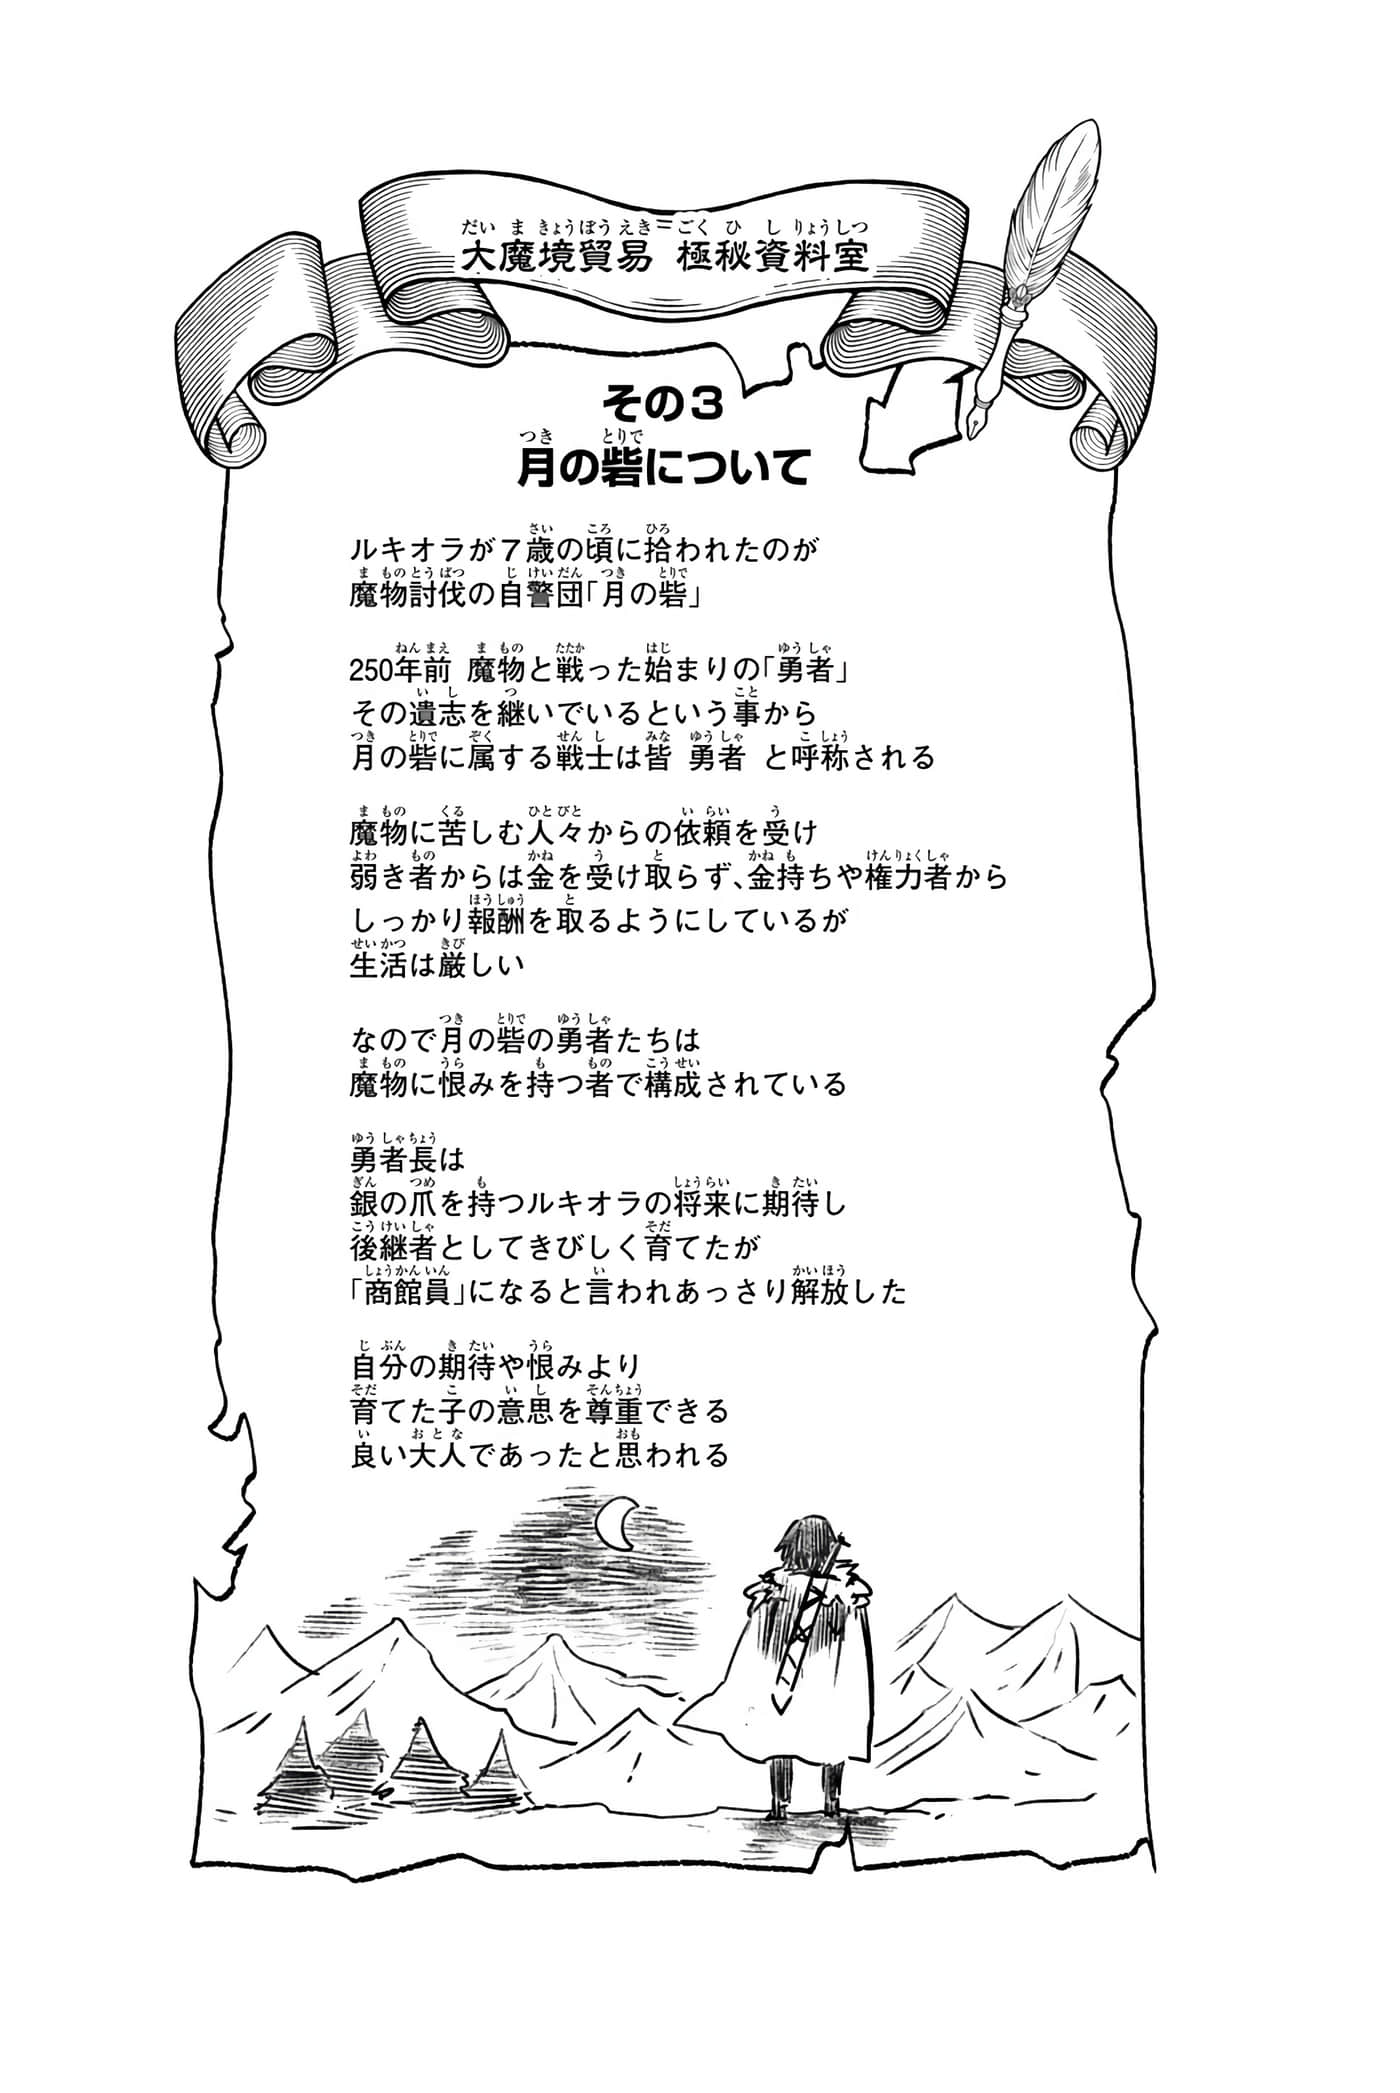 大魔境貿易 極秘資料室
その3
月の砦について
ルキオラが7歳の頃に拾われたのが
魔物討伐の自警団「月の砦」
250年前 魔物と戦った始まりの「勇者」
その遺志を継いでいるという事から
月の砦に属する戦士は皆 勇者 と呼称される
魔物に苦しむ人々からの依頼を受け
弱き者からは金を受け取らず、金持ちや権力者から
しっかり報酬を取るようにしているが
生活は厳しい
なので月の砦の勇者たちは
魔物に恨みを持つ者で構成されている
勇者長は
銀の爪を持つルキオラの将来に期待し
後継者としてきびしく育てたが
「商館員」になると言われあっさり解放した
自分の期待や恨みより
育てた子の意思を尊重できる
良い大人であったと思われる